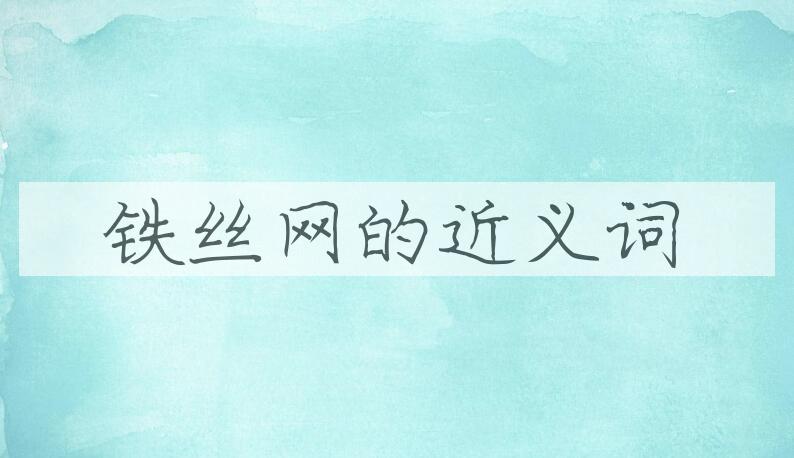 铁丝网的近义词